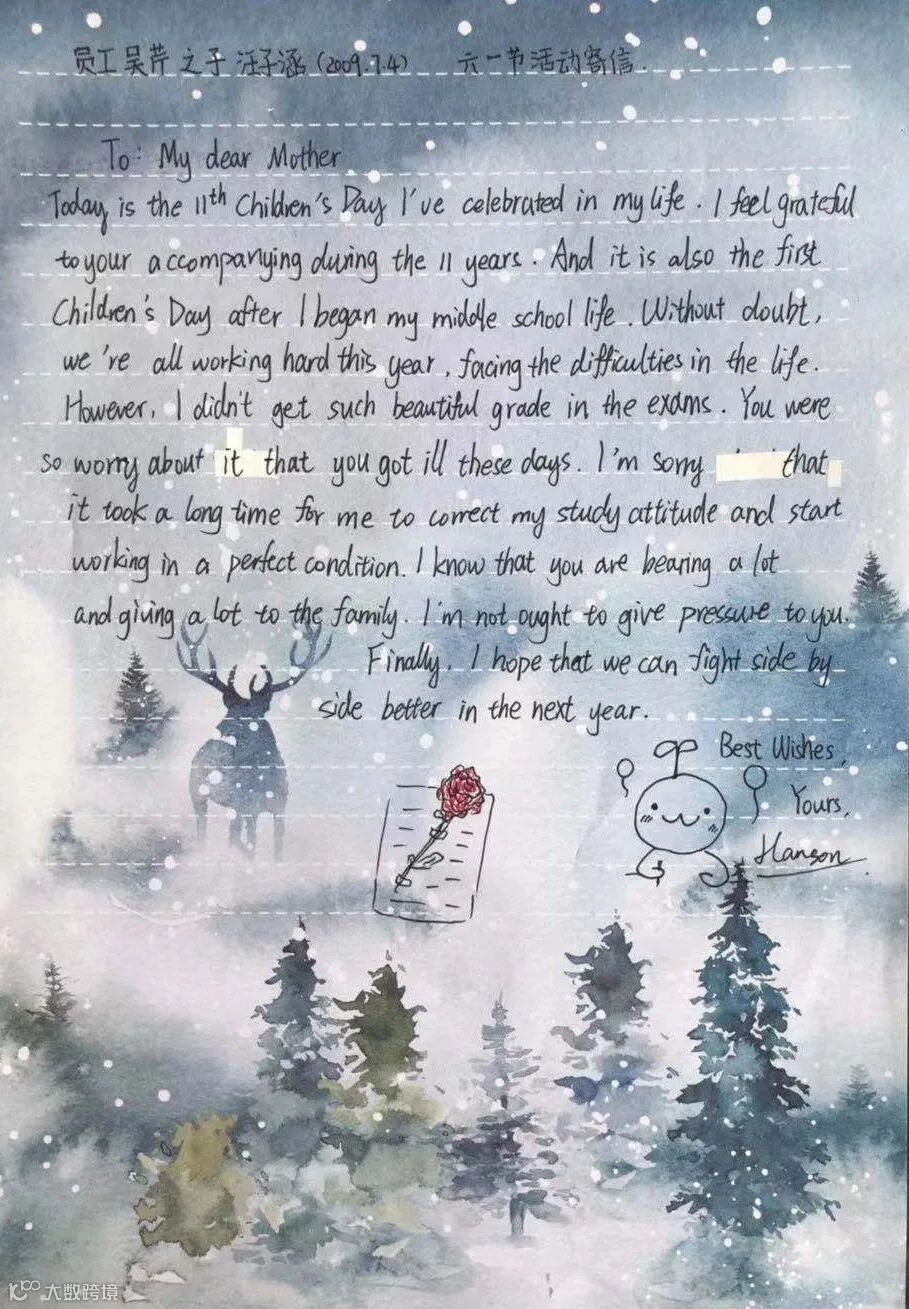 员工吴芹之子汪子涵(2009.7.4) 六一节活动寄信.
To: My dear Mother
Today is the 11th Children's Day I've celebrated in my life. I feel grateful
to your accompanying during the 11 years. And it is also the first
Children's Day after I began my middle school life. Without doubt,
we're all working hard this year, facing the difficulties in the life.
However, I didn't get such beautiful grade in the exams. You were
so worry about it that you got ill these days. I'm sorry that
it took a long time for me to correct my study attitude and start
working in a perfect condition. I know that you are bearing a lot
and giving a lot to the family. I'm not ought to give pressure to you.
Finally, I hope that we can fight side by
side better in the next year.
Best Wishes,
Yours,
Hanson
大数跨境